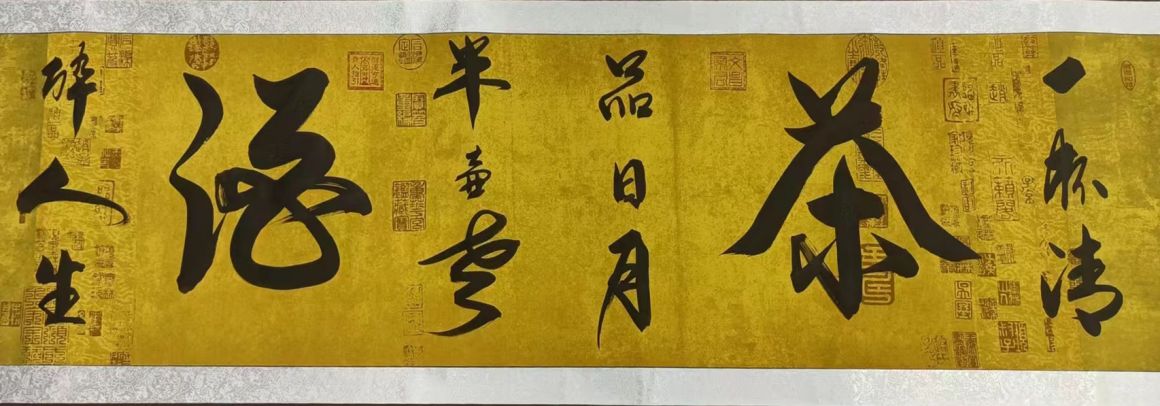 一杯清
茶
品日月
半壶老
酒
醉人生